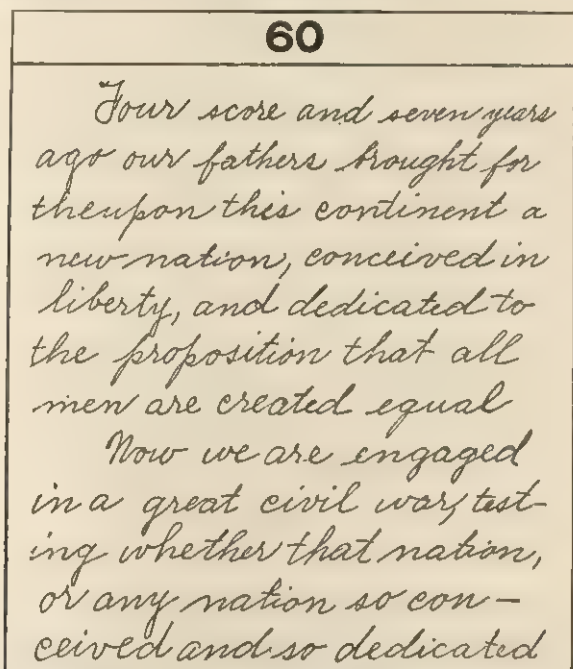 60
Four score and seven years
ago our fathers brought for
theupon this continent a
new nation, conceived in
liberty, and dedicated to
the proposition that all
men are created equal
Now we are engaged
in a great civil war, test-
ing whether that nation,
or any nation so con-
ceived and so dedicated